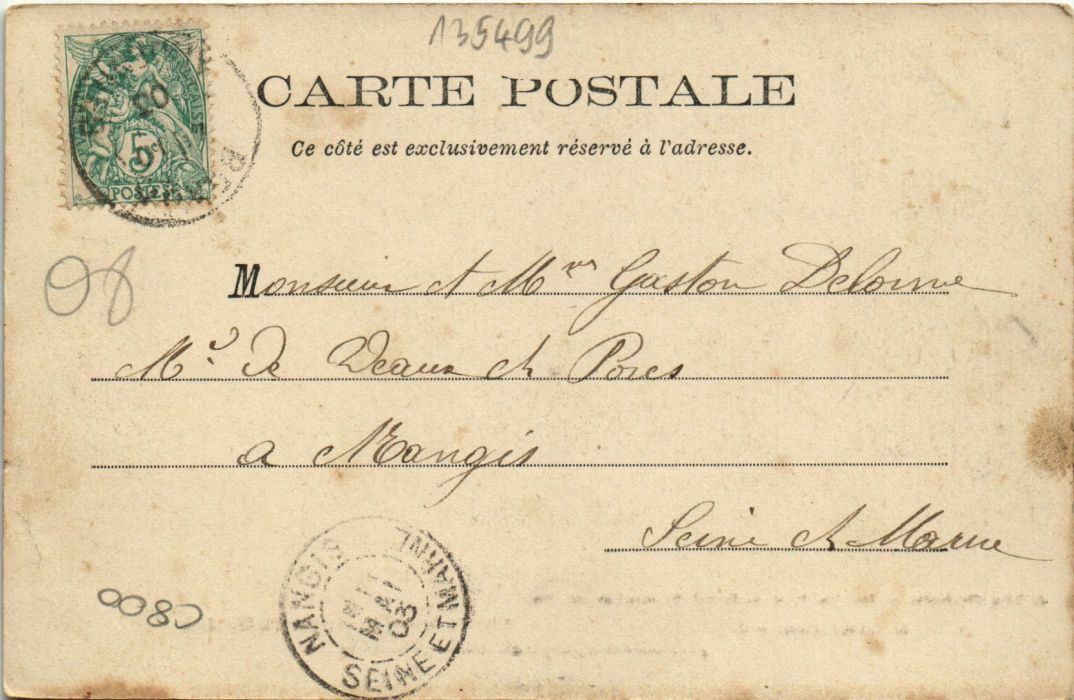 135499
CARTE POSTALE
Ce côté est exclusivement réservé à l'adresse.
5
POSTES
08
Monsieur et Mme Gaston Delorme
Md de Veaux et Porcs
a Nangis
Seine et Marne
NANGIS
MAI
03
SEINE ET MARNE
C800